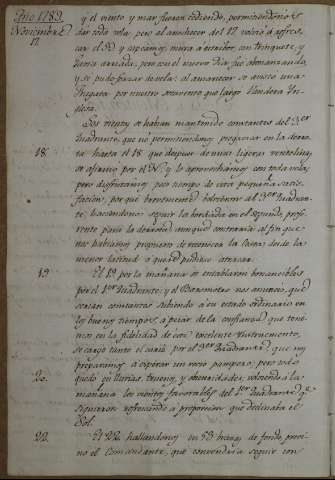 Año 1789
Noviembre
y el viento y mar fueron cediendo, permitiendonos
dar toda vela; pero al anochecer del 12 volvió à refres-
12
car el S. y capeamos, mura à estribor, con trinquete, y
pero con el nuevo dia fue abonanzando,
y se pudo forzar de vela: al amanecer se avistó una
fragata por nuestro que largó Vandera In-
glesa.
Los vientos se habian mantenido constantes del 3er
Quadrante, que no permitiendonos prosperar en la derro-
18
ta hasta el 18 que despues de unas ligeras ventolinas
se afirmó por el N. y lo aprovechamos con toda vela,
pero disfrutamos poco tiempo de esta pequeña satis-
faccion, por que brevemente volvieron al 3er Quadran-
te, haciendonos seguir la bordada en el segundo, prefi-
riente para la derrota aunque contraria al fin que
nos habiamos propuesto de reconocer la Costa desde la
menor latitud à que se pudiese atracar.
19
El 19 por la mañana se entablaron bonancibles
por el 1er Quadrante; y el Barometro nos anunció, que
serian constantes subiendo à su estado ordinario en
los buenos tiempos; à pesar de la confianza que tenia-
mos en la fidelidad de este excelente instrumento,
se cargó tanto el cariz por el 3er Quadrante, que nos
preparamos à esperar un recio pampero; pero todo
20
quedó en lluvias, truenos, y obscuridades, volviendo à la
mañana los vientos favorables del 1er Quadrante q.e
siguieron refrescando à proporcion que declinaba el
Sol.
22
El 22 hallandonos en 53 brazas de fondo, previ-
no el Comandante, que convendria seguir con